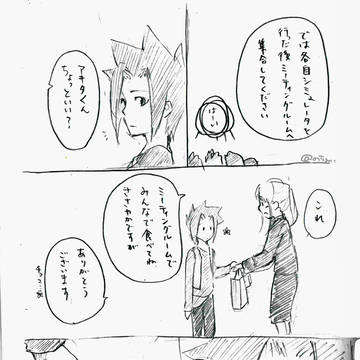 では各自シミュレータを
行った後ミーティングルームへ
集合してください
はーい
アキタくん
ちょっといい？
これ
ミーティングルームで
みんなで食べてね
ささやかですが
ありがとう
ございます
チョコ…